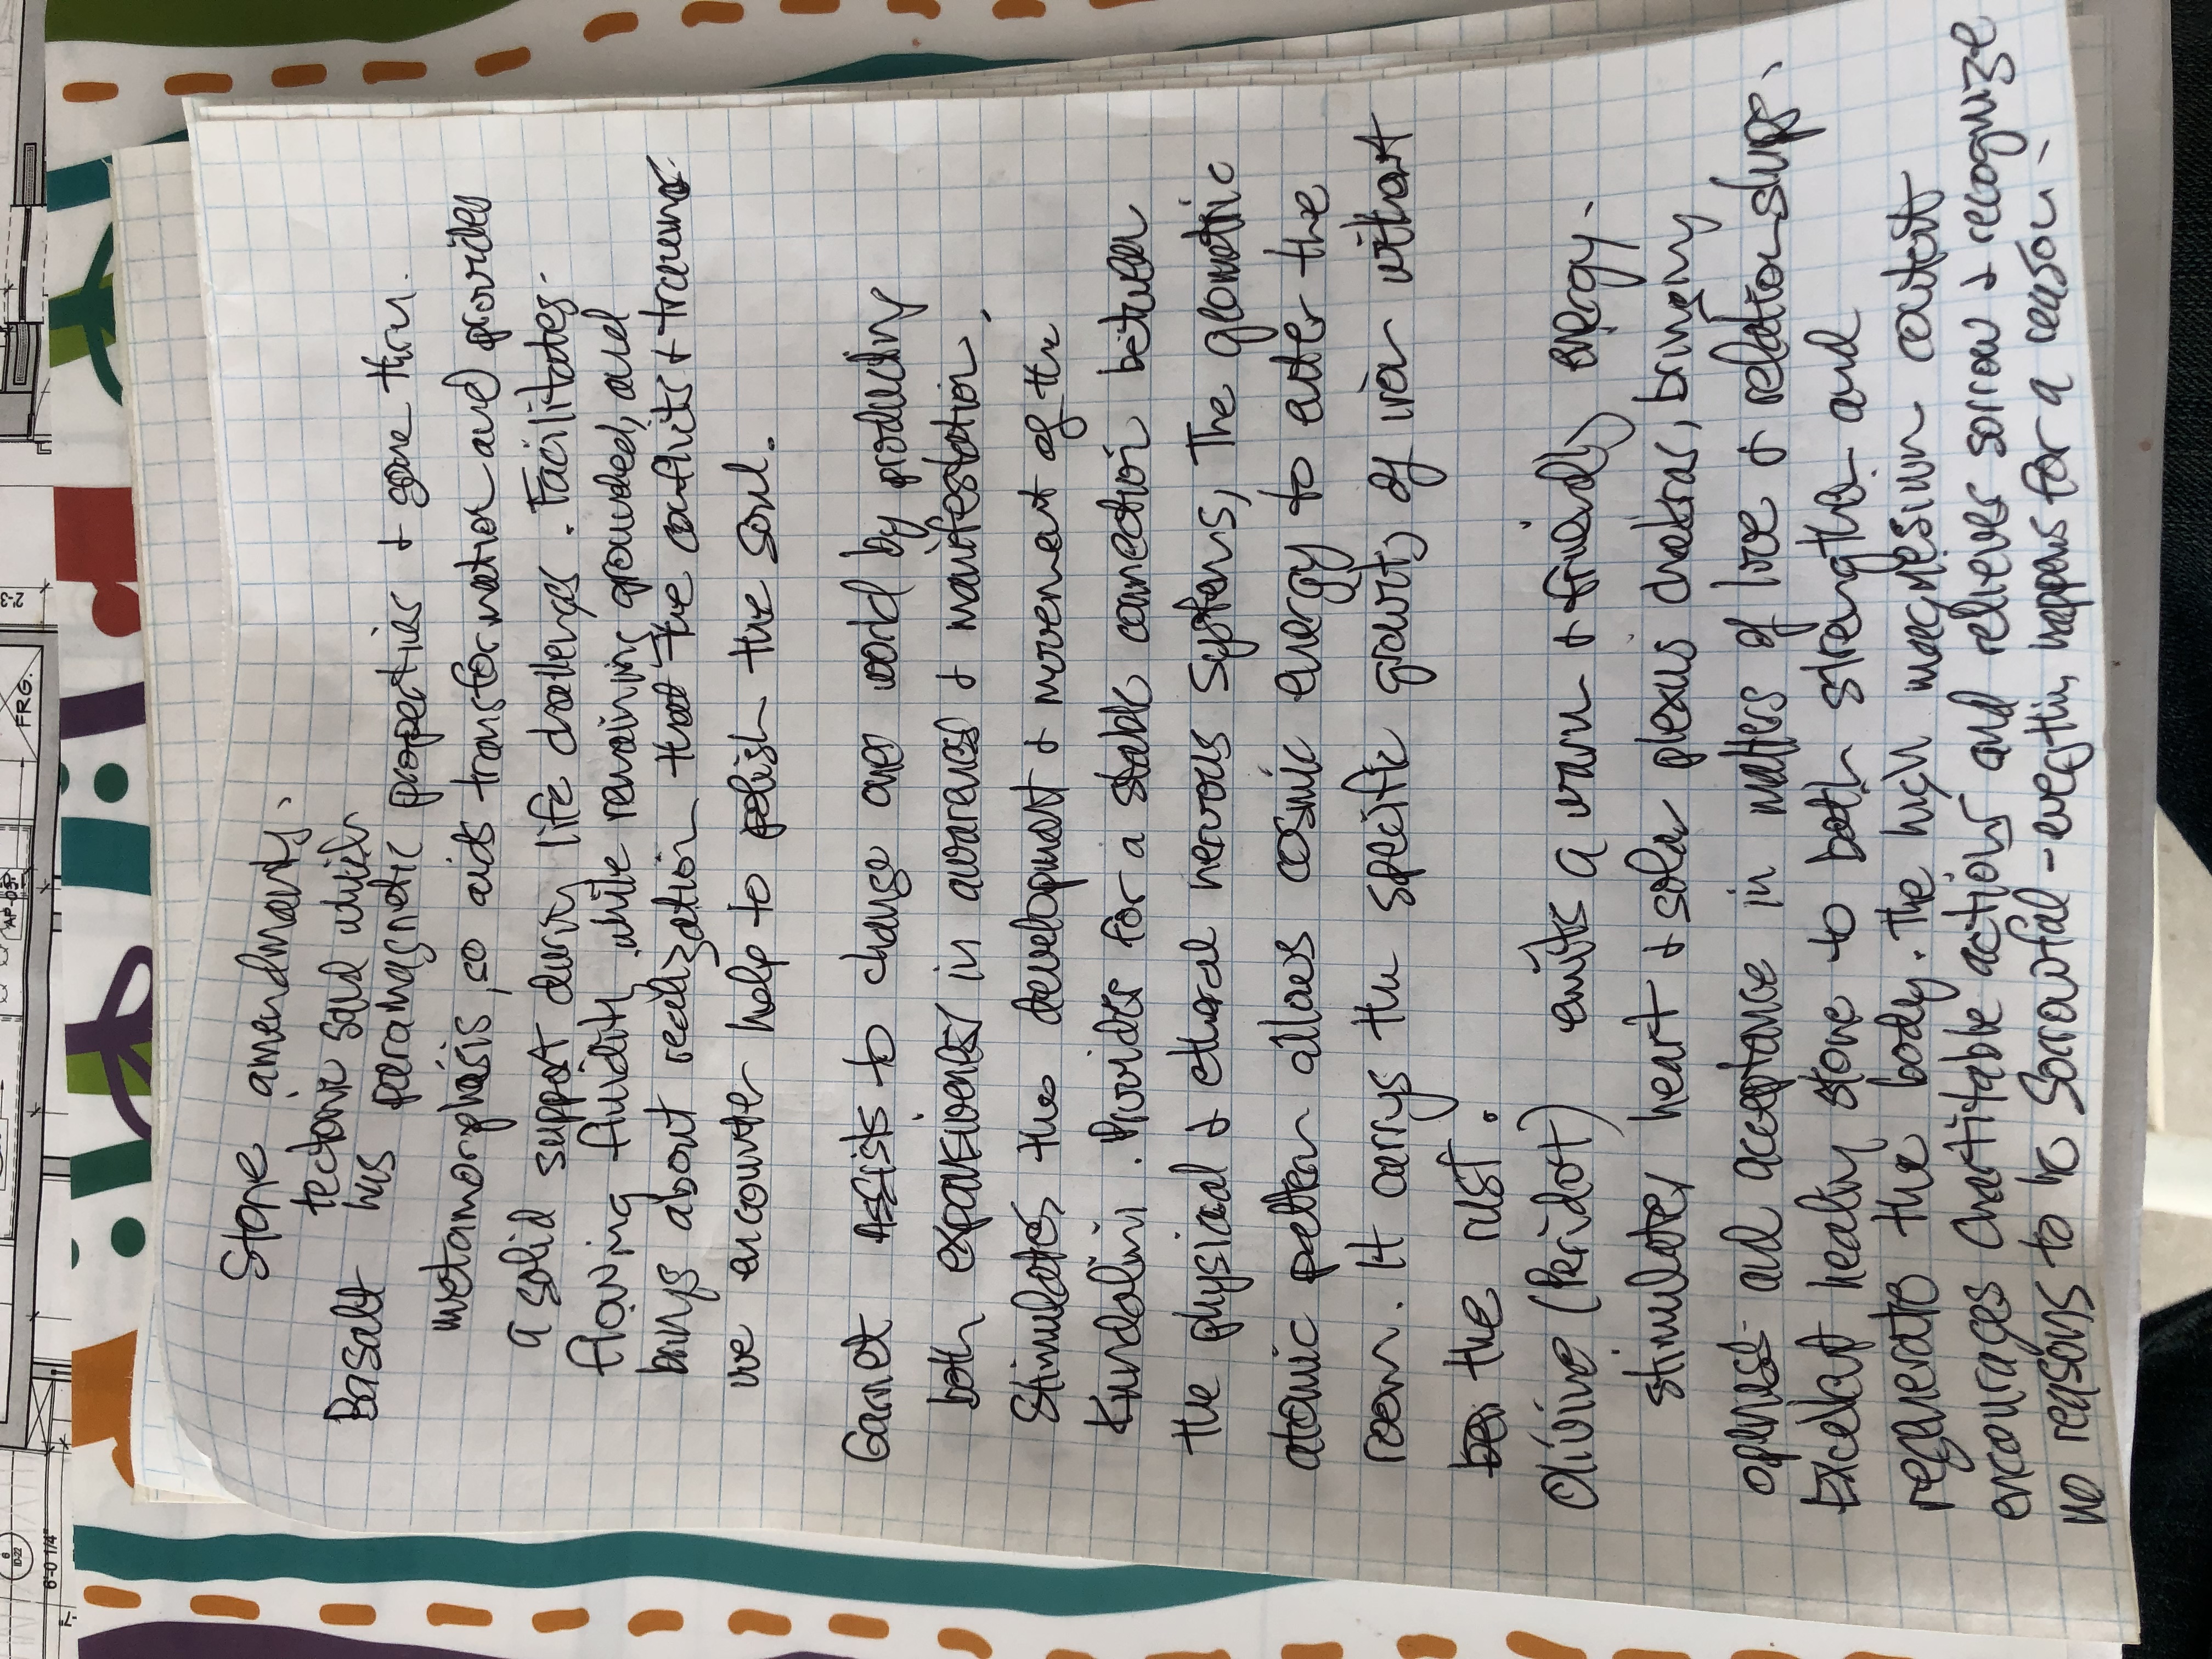 6
ID-22
6'-0 1/4"
AP-03
FRG.
2'-3
Stone amendments.
tectonic sand which
Basalt has paramagnetic properties & gone thru.
metamorphasis, so aids transformation and provides
a solid support during life challenges. Facilitates
flowing fluidity while remaining grounded, and
brings about realization that the conflicts & traumas
we encounter help to polish the soul.
Garnet Assists to change over world by producting
both expansiveness in awareness & manifestation.
Stimulates the development & movement of the
Kundalini. Provides for a stable connection between
the physical & etheral nervous systems, The geometric
atomic pattern allows cosmic energy to enter the
room. It carrys the specific gravity of iron without
the rust.
Olivine (Peridot) emits a warm & friendly energy.
stimulates heart & solar plexus chakras, bringing
openess and acceptance in matters of love & relationships.
Excellent healing stone to both strengthen and
regenerate the body. The high magnesium content
encourages Chartitable actions and relieves sorrow & recognize
no reasons to be Sorrowful - everything happens for a reason.